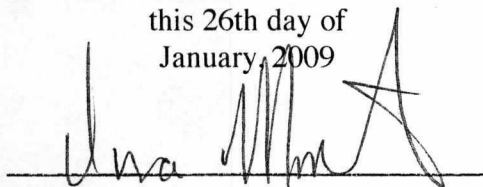 this 26th day of
January, 2009